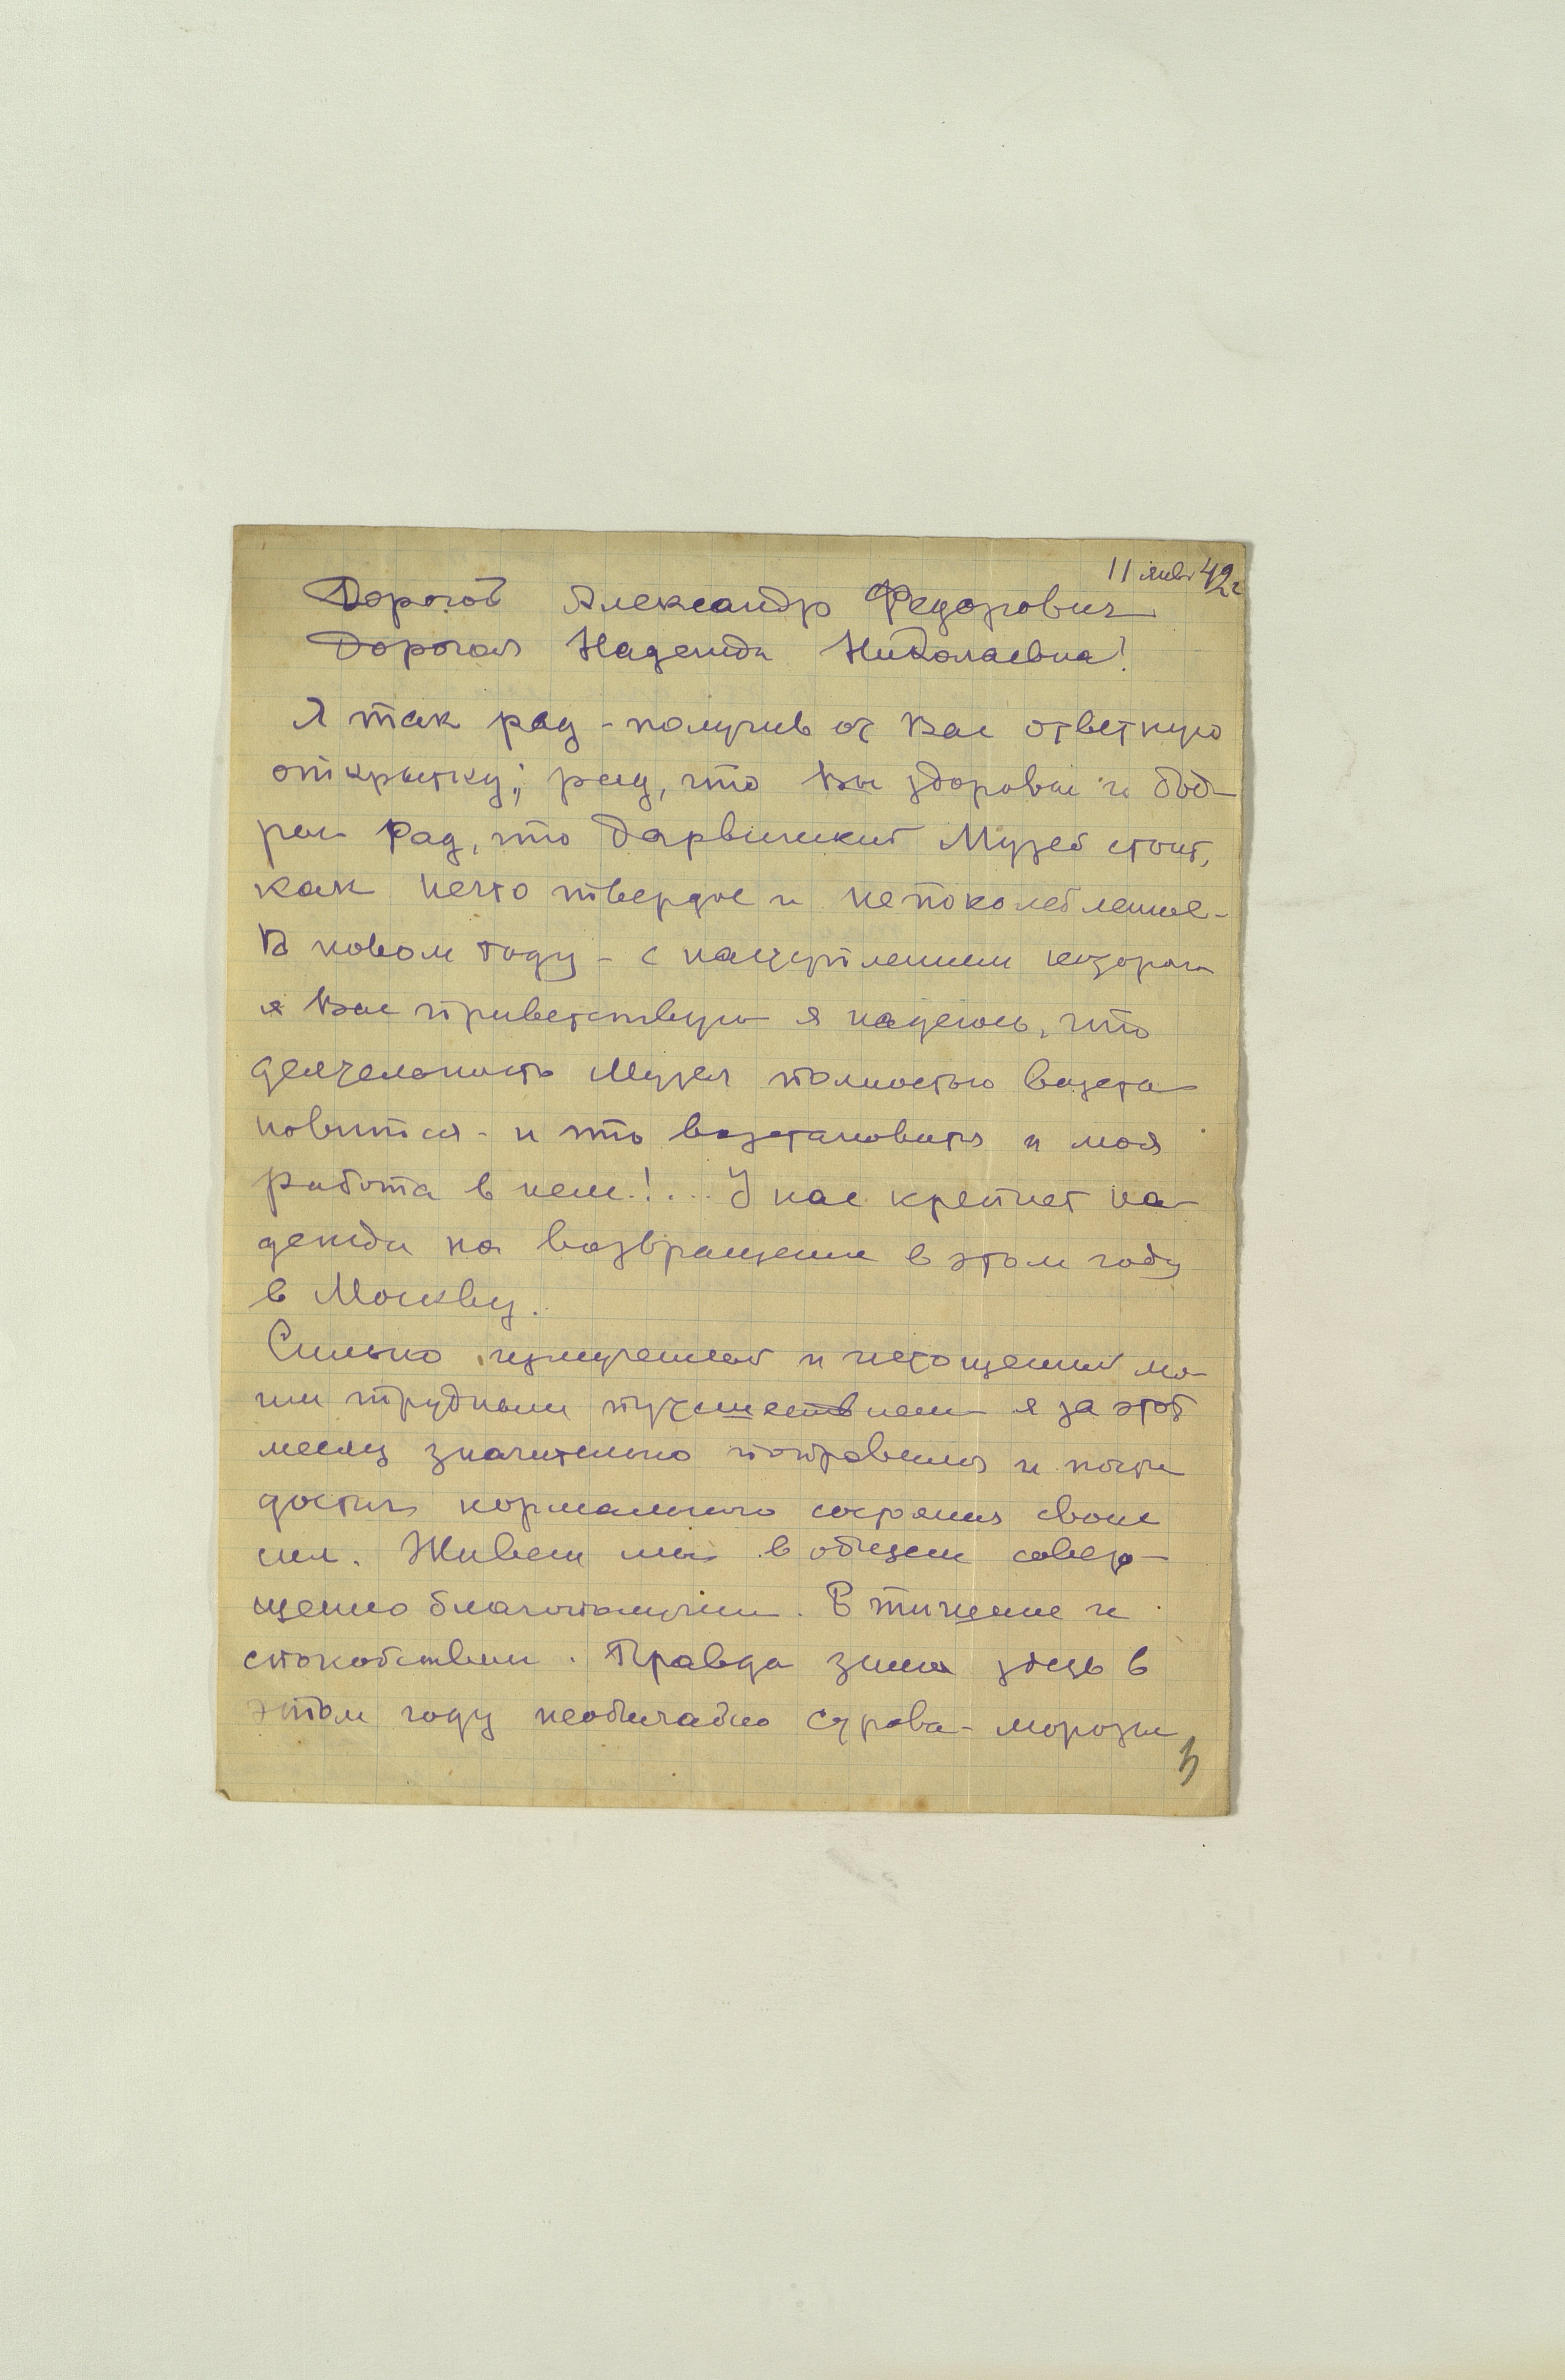 11 янв 42г
Дорогой Александр Федорович
Дорогая Надежда Николаевна!
Я так рад - получив от Вас ответную
открытку; рад, что Вы здоровы и бод-
ры. Рад, что Дарвинский Музей стоит,
как нечто твердое и непоколебленное -
В новом году - с наступлением которого
я Вас приветствую я надеюсь, что
деятельность Музея полностью возста
новится - и что возстановится и моя
работа в нем!... У нас крепнет на-
дежда на возвращение в этом году
в Москву.
Сильно измученный и истощенный мо-
им трудным путешествием я за этот
месяц значительно поправился и почти
достиг нормального состояния своих
сил. Живем мы в общем совер-
шенно благополучно. В тишине и
спокойствии. Правда зима здесь в
этом году необычайно сурова - морозы